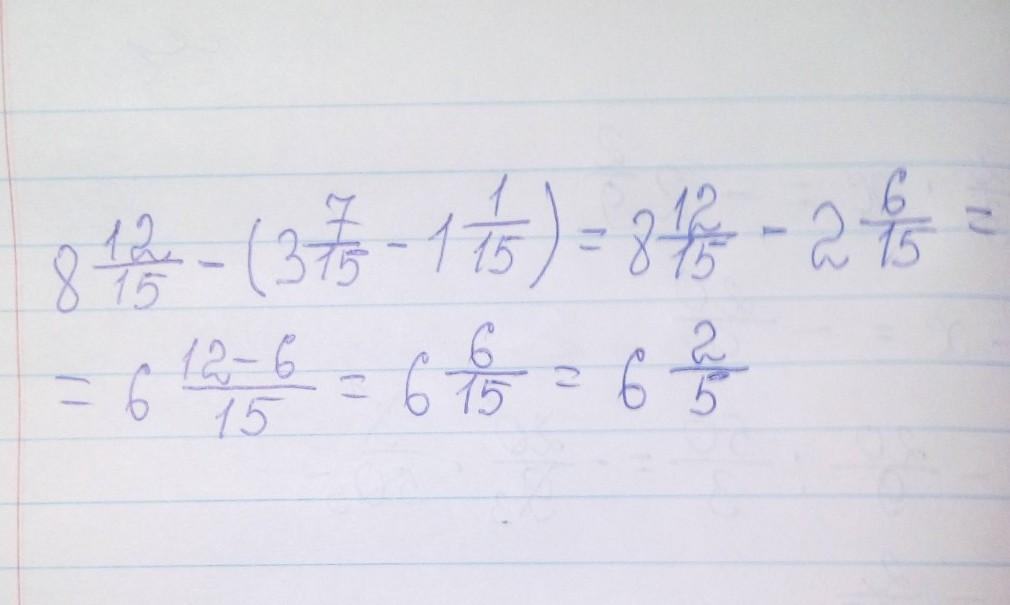 8 12/15 - (3 7/15 - 1 1/15) = 8 12/15 - 2 6/15 =
= 6 12-6/15 = 6 6/15 = 6 2/5